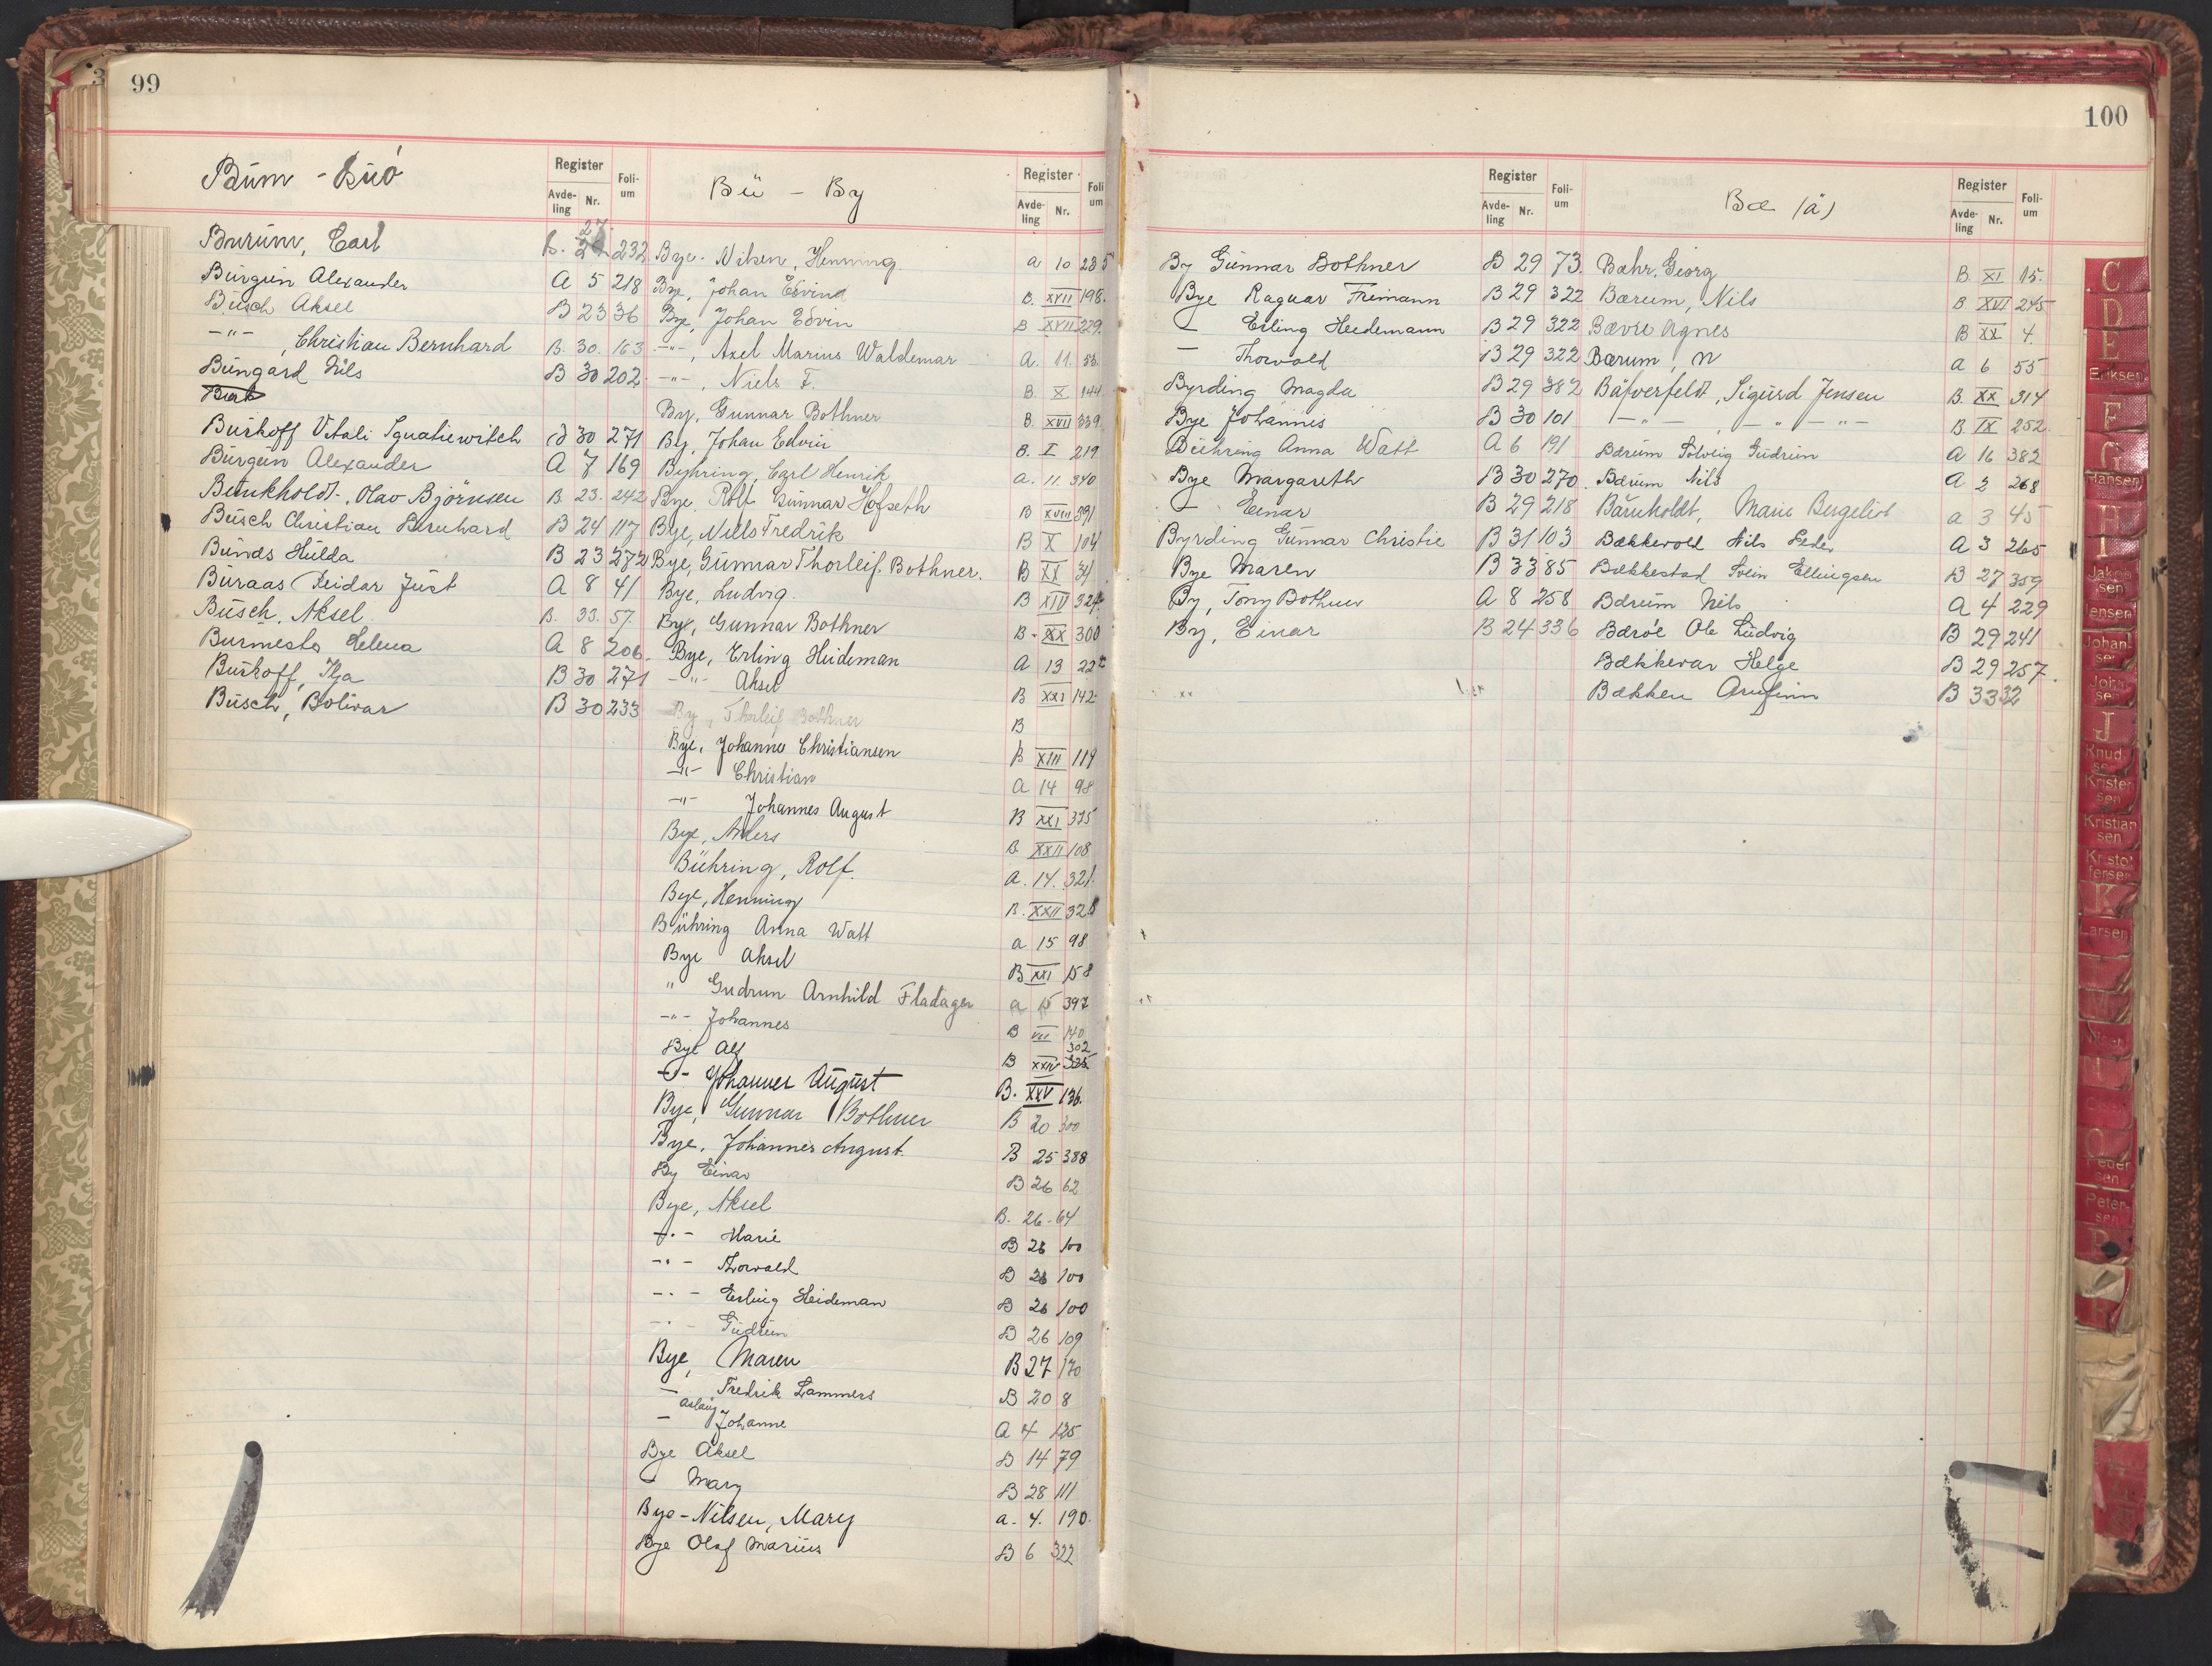 99
Bum - Buö
Register
Avde-ling Nr.
Foli-um
Burum, Carl B. 27 232
Burgun Alexander A 5 218
Busch Aksel B 23 36
-"- , Christian Bernhard B. 30. 163
Bungard Nils B 30 202
Burkoff Vitali Ignatiewitch B 30 271
Burgun Alexander A 7 169
Bunkholdt, Olav Bjørnsen B 23. 242
Busch Christian Bernhard B 24 117
Bunds Hulda B 23 272
Buraas Reidar Just A 8 41
Busch, Aksel B. 33. 57.
Burmester Helena A 8 206.
Burkoff, Ilja B 30 271
Busch, Bolivar B 30 233
Bü - By
Register
Avde-ling Nr.
Foli-um
Bye-Nilsen, Henning a 10 285
Bye, Johan Edvind B. XVII 198.
Bye, Johan Edvin B XVII 229.
-"-, Axel Marius Waldemar A. 11. 53.
-"-, Niels F. B. X 144
By, Gunnar Bothner B. XVII 339
By, Johan Edvin B. I 219
Byhring, Carl Henrik a. 11. 340
Bye, Rolf Gunnar Hofseth B XVIII 391
Bye, Niels Fredrik B X 104
Bye, Gunnar Thorleif Bothner. B XX 34
Bye, Ludvig. B XIV 324
Bye, Gunnar Bothner B. XX 300
Bye, Erling Heideman A 13 222
-"- Aksel B XXI 142
By, Thorleif Bothner B
Bye, Johannes Christiansen B XIII 119
-"- Christian a 14 98
-"- Johannes August B XXI 375
Bye, Anders B XXII 108
Bühring, Rolf. a. 14. 321.
Bye, Henning B. XXII 328
Bühring Anna Watt a 15 98
Bye Aksel B XXI 158
" Gudrun Arnhild Fladager a 15 397
-"- Johannes B VII 140
Bye Alf B XXIV 325 302
-"- Johannes August B. XXV 136.
Bye, Gunnar Bothner B 20 300
Bye, Johannes August. B 25 388
By Einar B 26 62
Bye, Aksel B. 26. 64
-"- Marie B 26 100
-"- Thorvald B 26 100
-"- Erling Heideman B 26 100
-"- Gudrun B 26 109
Bye, Maren B 27 170
- Fredrik Lammers B 20 8
- Aslaug Johanne a 4 125
Bye Aksel B 14 79
- Mary B 28 111
Bye-Nilsen, Mary a. 4. 190.
Bye Olaf Marius B 6 322
100
Register
Avde-ling Nr.
Foli-um
By Gunnar Bothner B 29 73.
Bye Ragnar Freimann B 29 322
- Erling Heidemann B 29 322
- Thorvald B 29 322
Byrding Magda B 29 382
Bye Johannes B 30 101
Buehring Anna Watt A 6 191
Bye Margareth B 30 270.
- Einar B 29 218
Byrding Gunnar Christie B 31 103
Bye Maren B 33 85
By, Tony Bothner A 8 258
By, Einar B 24 336
Bæ (ä)
Register
Avde-ling Nr.
Foli-um
Bæhr, Georg B. XI 15.
Bærum, Nils B XVI 245
Bævre Agnes B XX 4.
Bærum, N a 6 55
Bäfverfeldt, Sigurd Jensen B. XX 314
-"- , -"- -"- B. IX 252.
Bærum Solveig Gudrun a 16 382
Bærum Nils a 2 268
Bärnholdt, Marie Bergeliot a 3 45
Bækkevold Nils Peder A 3 265
Bækkestad Svein Ellingsen B 27 359
Bærum Nils a 4 229
Bærøe Ole Ludvig B 29 241
Bækkevar Helge B 29 257.
Bækken Arnfinn B 33 32
C
D
E
Eriksen
F
G
Hansen
H
I
Jakobsen
Jensen
Johansen
Johnsen
J
Knudsen
Kristensen
Kristiansen
Kristoffersen
K
Larsen
Pedersen
Petersen